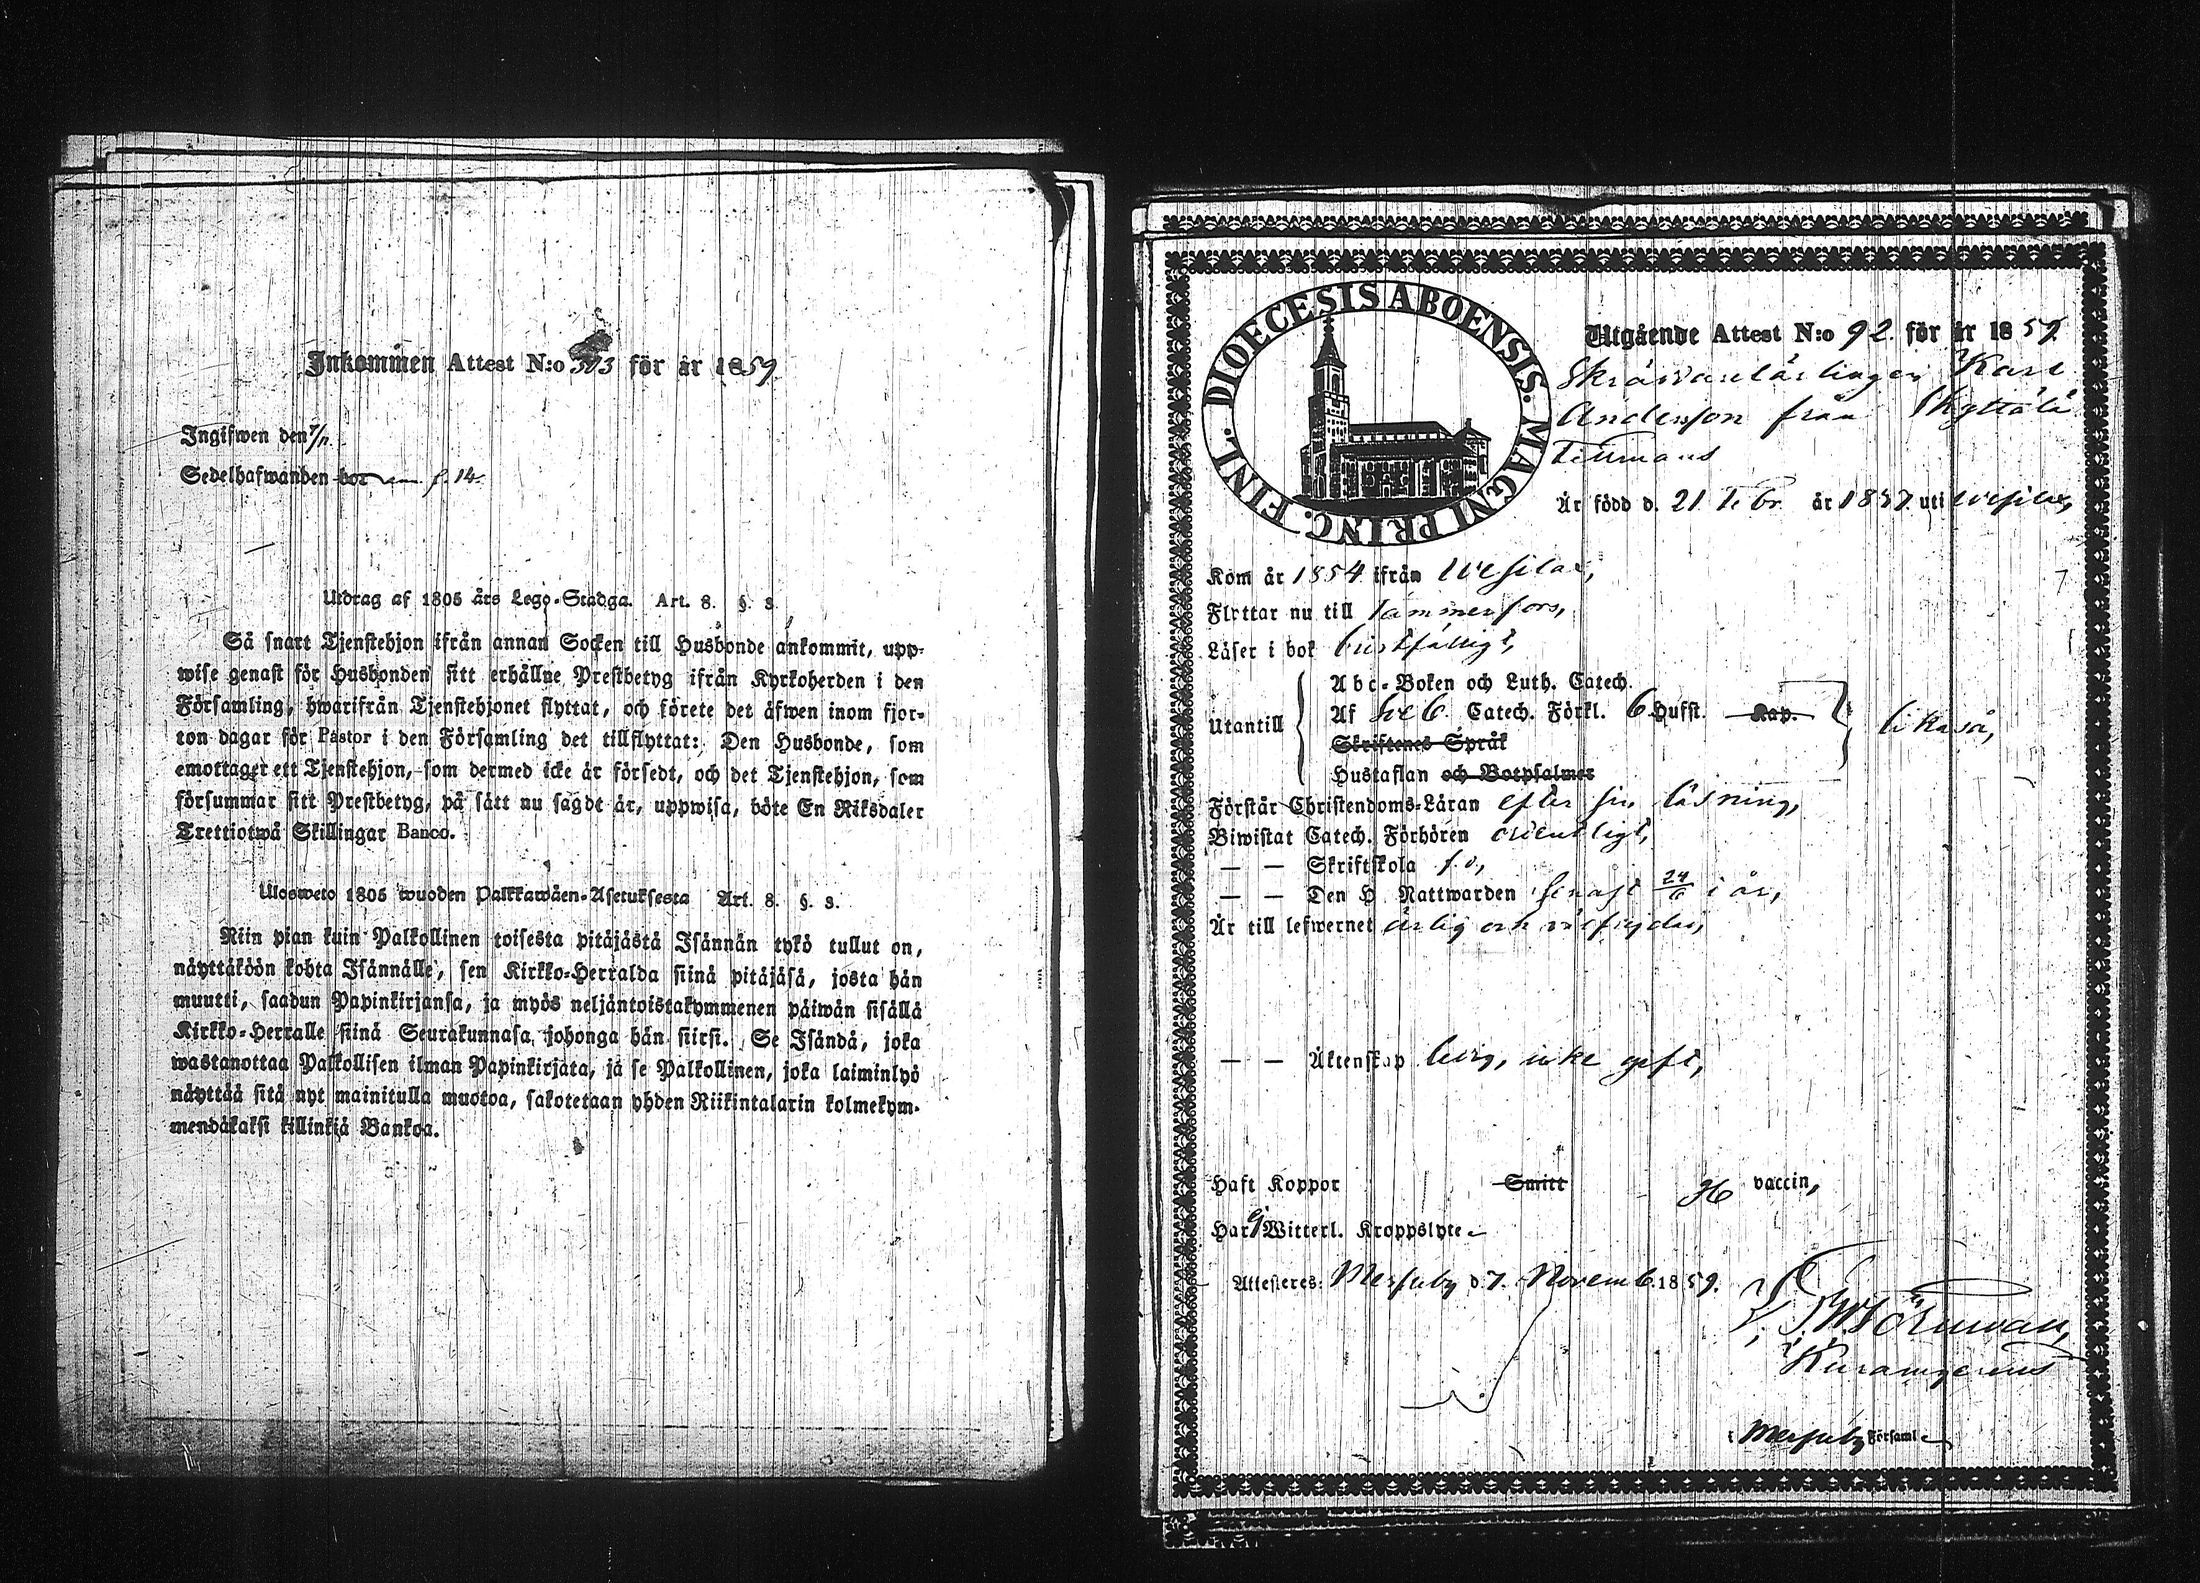 Inkommen Attest N:o 303 för år 1859
Ingifwen den 7/11.
Sedelhafwanden bor p. 14.
Utdrag af 1805 års Lego-Stadga. Art. 8. §. 3.
Så snart Tjenstehjon ifrån annan Socken till Husbonde ankommit, upp-
wise genast för Husbonden sitt erhållne Prestbetyg ifrån Kyrkoherden i den
Församling, hwarifrån Tjenstehjonet flyttat, och förete det äfwen inom fjor-
ton dagar för Pastor i den Församling det tillflyttat: Den Husbonde, som
emottager ett Tjenstehjon, som dermed icke är försedt, och det Tjenstehjon, som
försummar sitt Prestbetyg, på sätt nu sagdt är, uppwisa, böte En Riksdaler
Trettiotwå Skillingar Banco.
Ulosweto 1805 wuoden Palkkawäen-Asetuksesta Art. 8. §. 3.
Niin pian kuin Palkollinen toisesta pitäjästä Isännän tykö tullut on,
näyttäköön kohta Isännälle, sen Kirkko-Herralda siinä pitäjäsä, josta hän
muutti, saadun Papinkirjansa, ja myös neljäntoistakymmenen päiwän sisällä
Kirkko-Herralle siinä Seurakunnasa, johonga hän siirsi. Se Isändä, joka
wastanottaa Palkollisen ilman Papinkirjata, ja se Palkollinen, joka laiminlyö
näyttää sitä nyt mainitulla muotoa, sakotetaan yhden Riikintalarin kolmekym-
mendäkaksi killinkiä Bankoa.
DIOECESIS ABOENSIS. MAGNI PRINC. FINL.
Utgående Attest N:o 92 för år 1859.
Skräddarelärlingen Karl
Anderson från Skyttälä
Tillmans
Är född d. 21 Febr. år 1837 uti Wesilax,
Kom år 1854 ifrån Wesilax,
Flyttar nu till Tammerfors,
Läser i bok bristfälligt,
Utantill
Abc-Boken och Luth. Catech.
Af Sveb. Catech. Förkl. 6 Hufst. Kap.
likaså,
Skriftenes Språk
Hustaflan och Botpsalmer
Förstår Christendoms-Läran efter sin läsning,
Biwistat Catech. Förhören ordentligt,
— — Skriftskola f. o,
— — Den H. Nattwarden senast 24/6 i år,
Är till lefwernet ärlig och välfrejdad,
— — Äktenskap ledig, icke gift,
Haft Koppor Smitt vaccin,
Har ej Witterl. Kroppslyte
Attesteres: Messuby d. 7. Novemb. 1859.
Törnwall,
i Messuby Församl